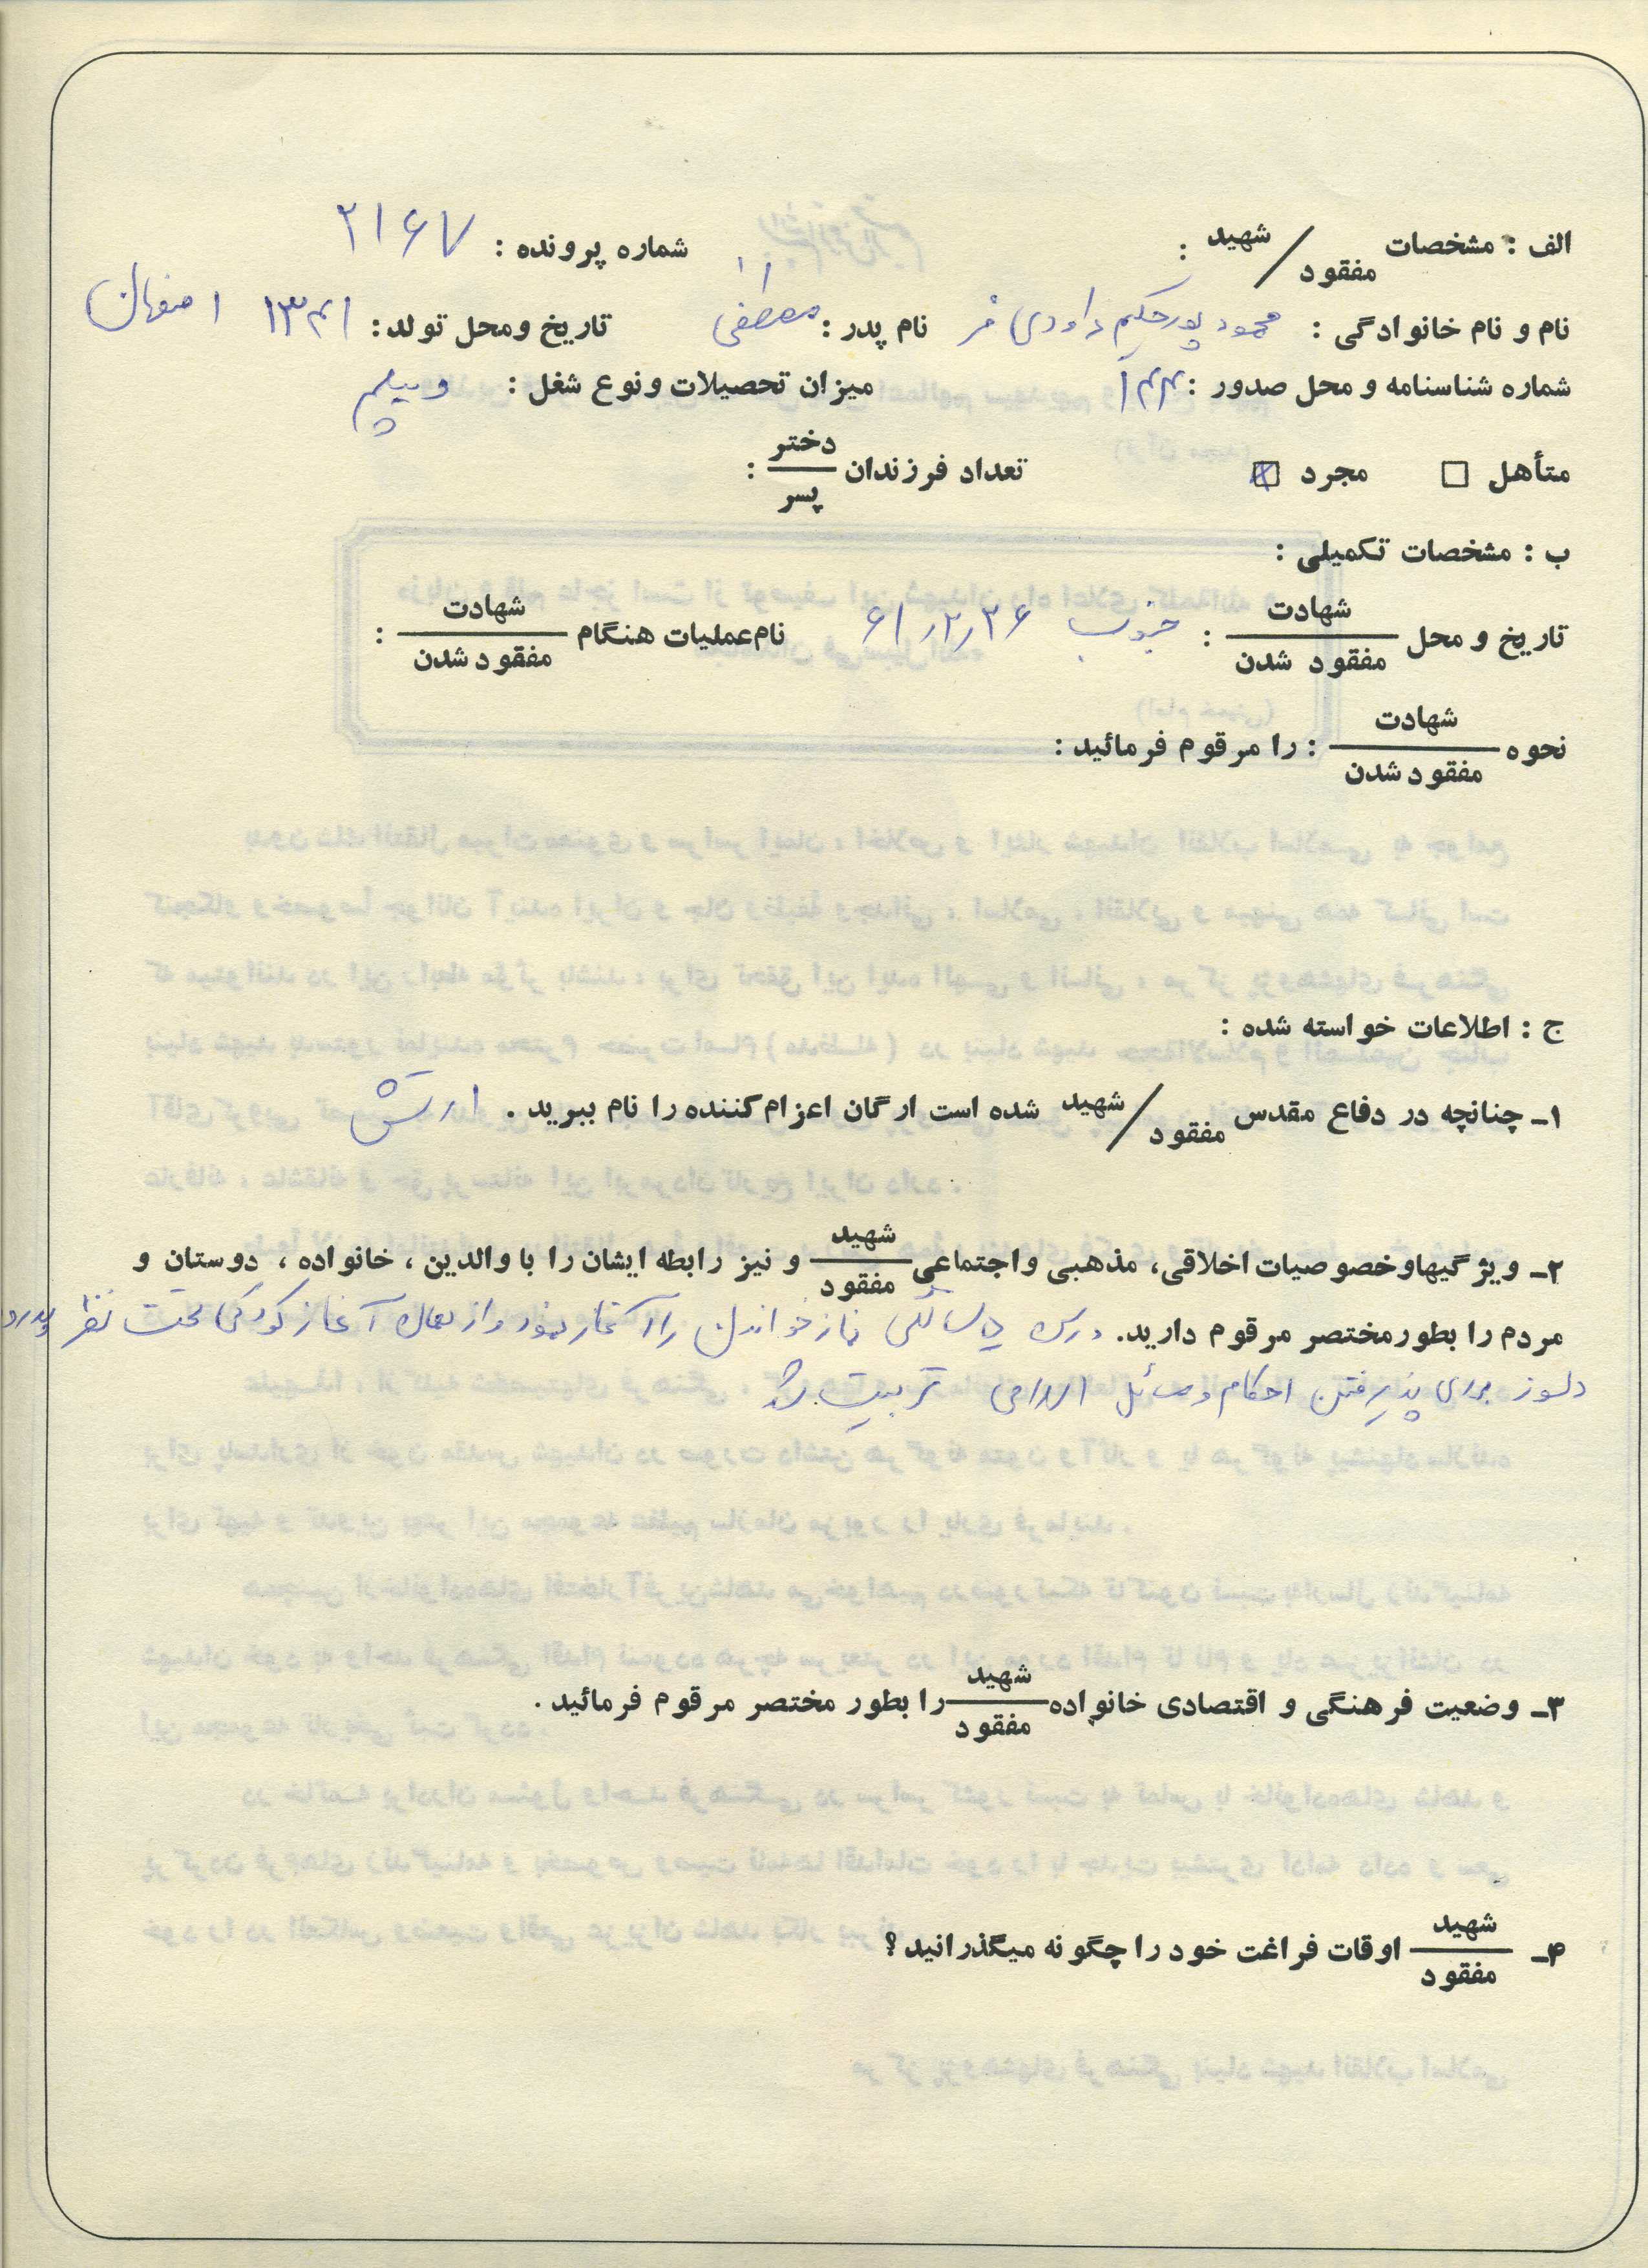 الف : مشخصات شهید / مفقود : شماره پرونده : ۲۱۶۷
نام و نام خانوادگی : محمود پورحکیم داودی فر نام پدر : مصطفی تاریخ ومحل تولد : ۱۳۴۱ اصفهان
شماره شناسنامه و محل صدور : ۱۴۴ میزان تحصیلات ونوع شغل : دیپلم
متأهل مجرد تعداد فرزندان دختر / پسر :
ب : مشخصات تکمیلی :
تاریخ و محل شهادت / مفقود شدن : جنوب ۶۱٫۲٫۲۶ نام عملیات هنگام شهادت / مفقود شدن :
نحوه شهادت / مفقود شدن : را مرقوم فرمائید :
ج : اطلاعات خواسته شده :
۱ـ چنانچه در دفاع مقدس شهید / مفقود شده است ارگان اعزام کننده را نام ببرید . ارتش
۲ـ ویژگیهاوخصوصیات اخلاقی، مذهبی واجتماعی شهید / مفقود و نیز رابطه ایشان را با والدین ، خانواده ، دوستان و
مردم را بطورمختصر مرقوم دارید. در سن سالگی نماز خواندن را آغاز نمود و از همان آغاز کودکی تحت نظر پدر
دلسوز برای پذیرفتن احکام و مسائل اسلامی تربیت شد
۳ـ وضعیت فرهنگی و اقتصادی خانواده شهید / مفقود را بطور مختصر مرقوم فرمائید .
۴ـ شهید / مفقود اوقات فراغت خود را چگونه میگذرانید ؟